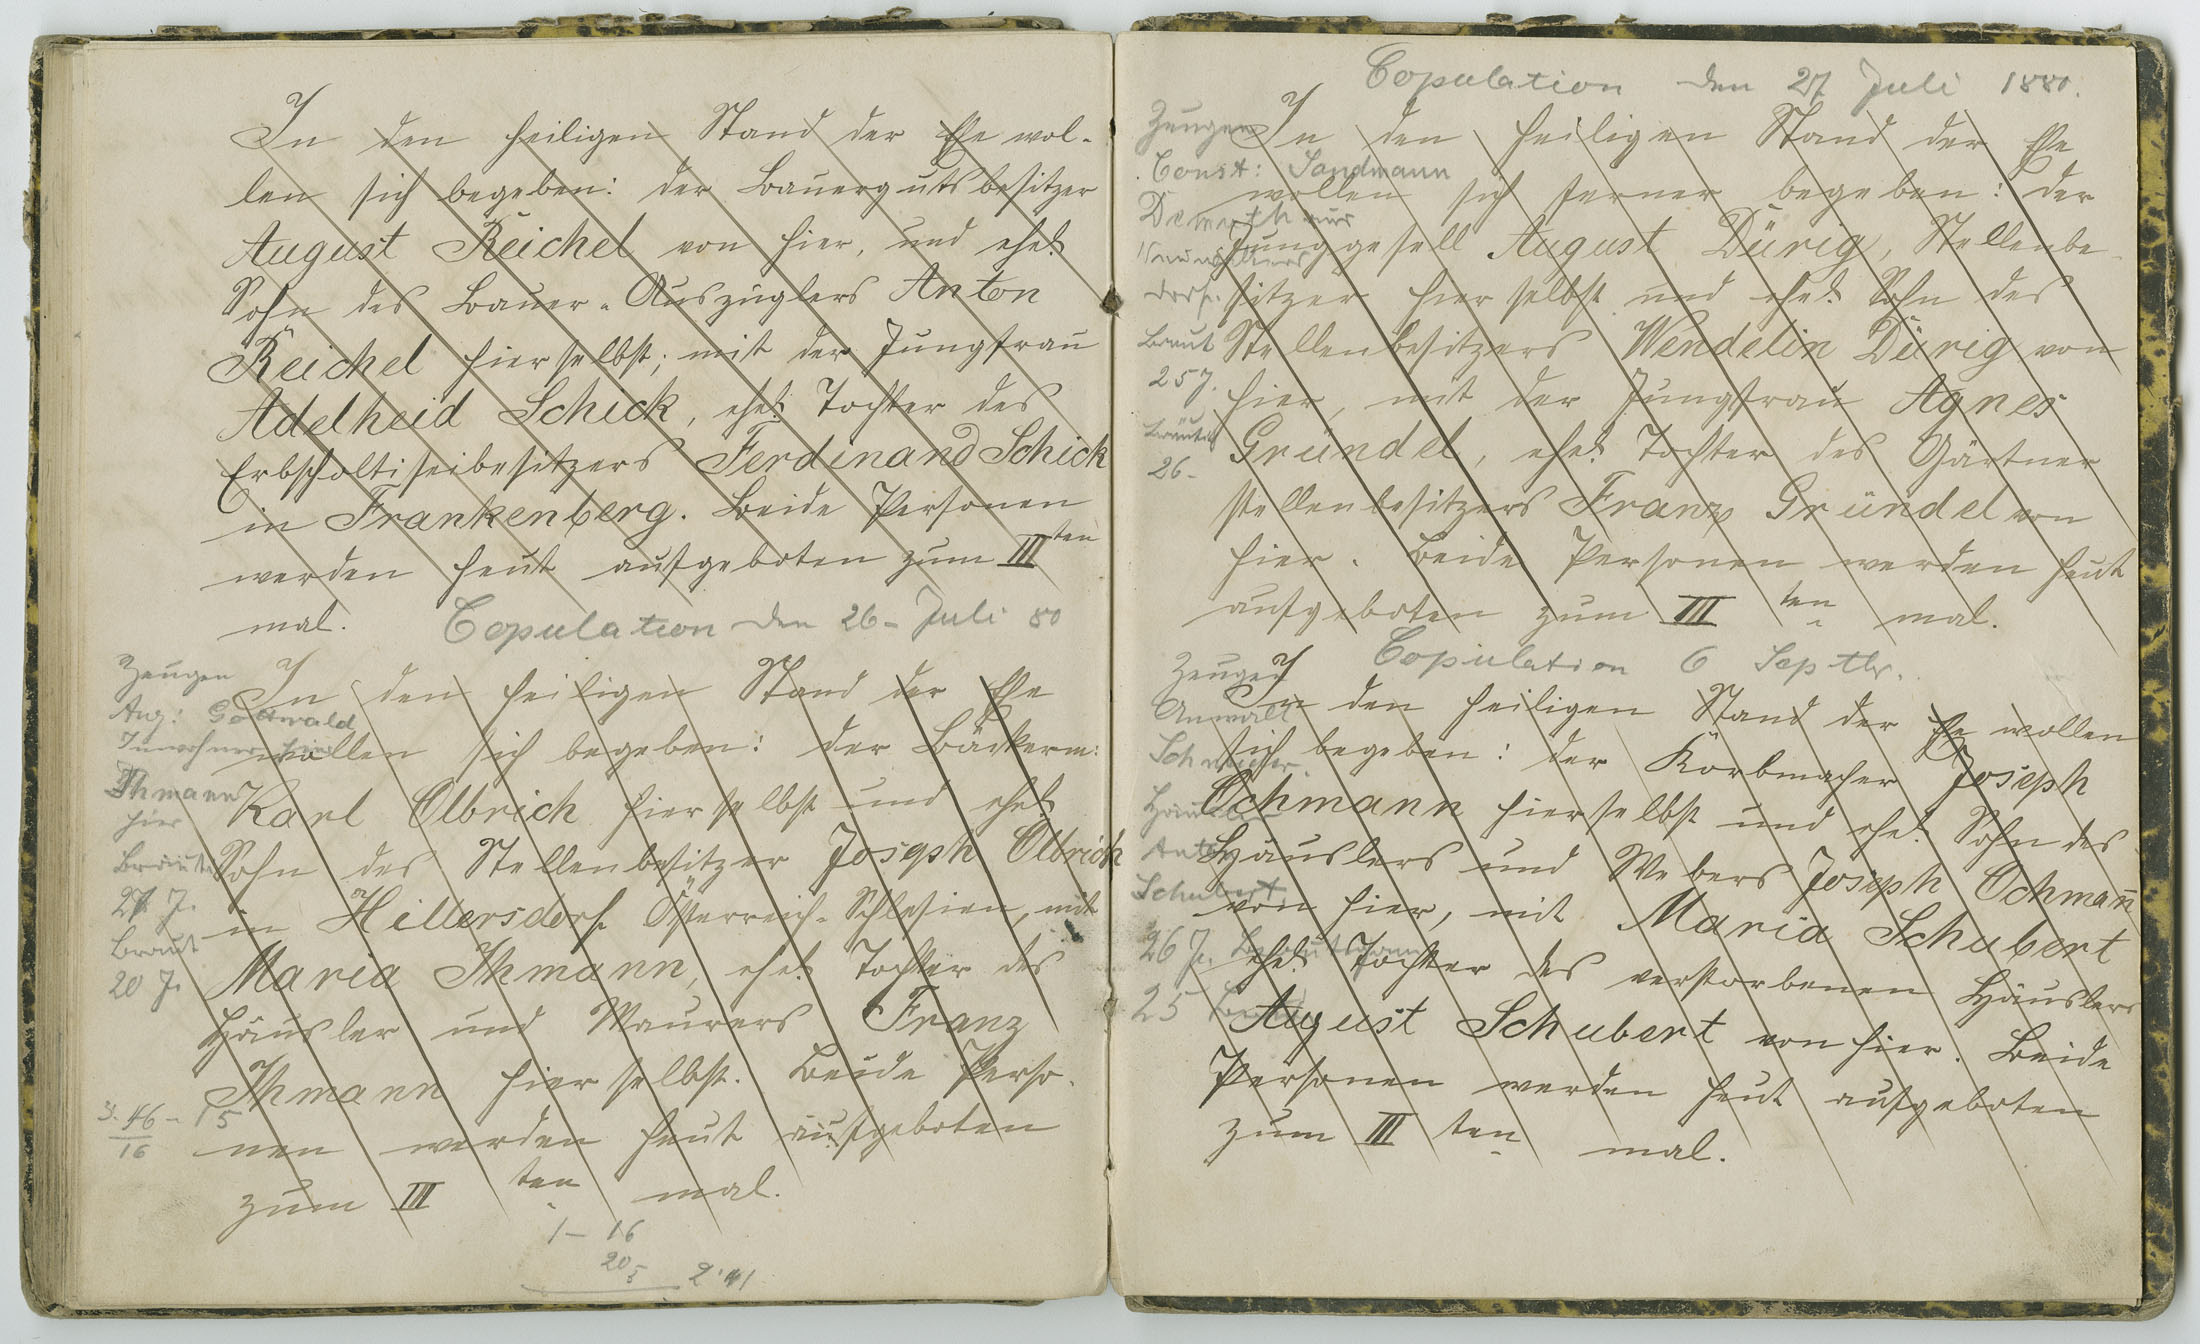 In den heiligen Stand der Ehe wol-
len sich begeben: der Bauergutsbesitzer
August Reichel von hier, und ehel.
Sohn des Bauer-Auszüglers Anton
Reichel hierselbst; mit der Jungfrau
Adelheid Schick, ehel. Tochter des
Erbscholtiseibesitzers Ferdinand Schick
in Frankenberg. Beide Personen
werden heut aufgeboten zum III ten
mal.
Copulation den 26- Juli 80
Zeugen
Aug: Gottwald
Inwohner hier
Ihmann
hier
Bräut
27 J.
Braut
20 J.
In den heiligen Stand der Ehe
wollen sich begeben: der Bäckerm:
Karl Olbrich hierselbst und ehel.
Sohn des Stellenbesitzer Joseph Olbrich
in Hillersdorf. Österreich-Schlesien, mit
Maria Ihmann, ehel. Tochter des
Häusler und Maurers Franz
Ihmann hierselbst. Beide Perso-
nen werden heut aufgeboten
zum III ten mal.
46 - 15
16
1 - 16
20
Copulation den 27 Juli 1880.
Zeugen
Const: Sandmann
dorf.
Braut
25 J.
Bräutig
26-
In den heiligen Stand der Ehe
wollen sich ferner begeben: der
Junggesell August Dürig, Stellenbe-
sitzer hierselbst und ehel. Sohn des
Stellenbesitzers Wendelin Dürig von
hier, mit der Jungfrau Agnes
Gründel, ehel. Tochter des Gärtner
stellenbesitzers Franz Gründel von
hier. Beide Personen werden heut
aufgeboten zum III ten mal.
Copulation 6 Septbr.
Zeugen
Anwalt
Häusler
Anton
Schubert.
26 J. Bräutigam
25 Braut
In den heiligen Stand der Ehe wollen
sich begeben: der Korbmacher Joseph
Ochmann hierselbst und ehel. Sohn des
Häuslers und Webers Joseph Ochman̄
von hier, mit Maria Schubert
ehel. Tochter des verstorbenen Häuslers
August Schubert von hier. Beide
Personen werden heut aufgeboten
zum III ten mal.